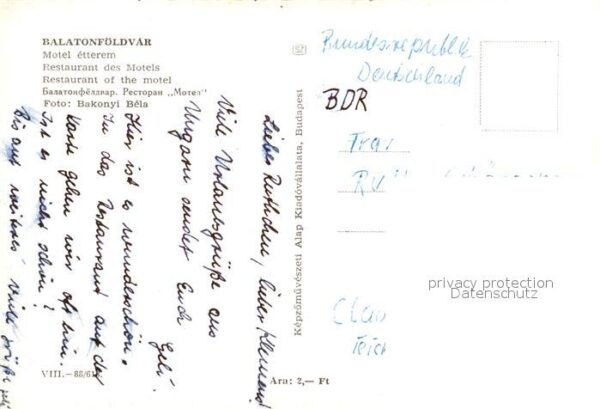 BALATONFÖLDVÁR
Motel étterem
Restaurant des Motels
Restaurant of the motel
Балатонфёлдвар. Ресторан „Мотел"
Foto: Bakonyi Béla
Liebes Ruthchen, lieber Klemens
Viele Urlaubsgrüße aus
Ungarn sendet Euch Geli.
Hier ist es wunderschön.
In das Restaurant auf der
Karte gehen wir oft hin.
Ist es nicht schön?
Bis auf weiteres! Viele Grüße Geli
VIII.—88/61
Ara: 2,— Ft
Képzőművészeti Alap Kiadóvállalata, Budapest
Bundesrepublik
Deutschland
BDR
Frau
privacy protection
Datenschutz